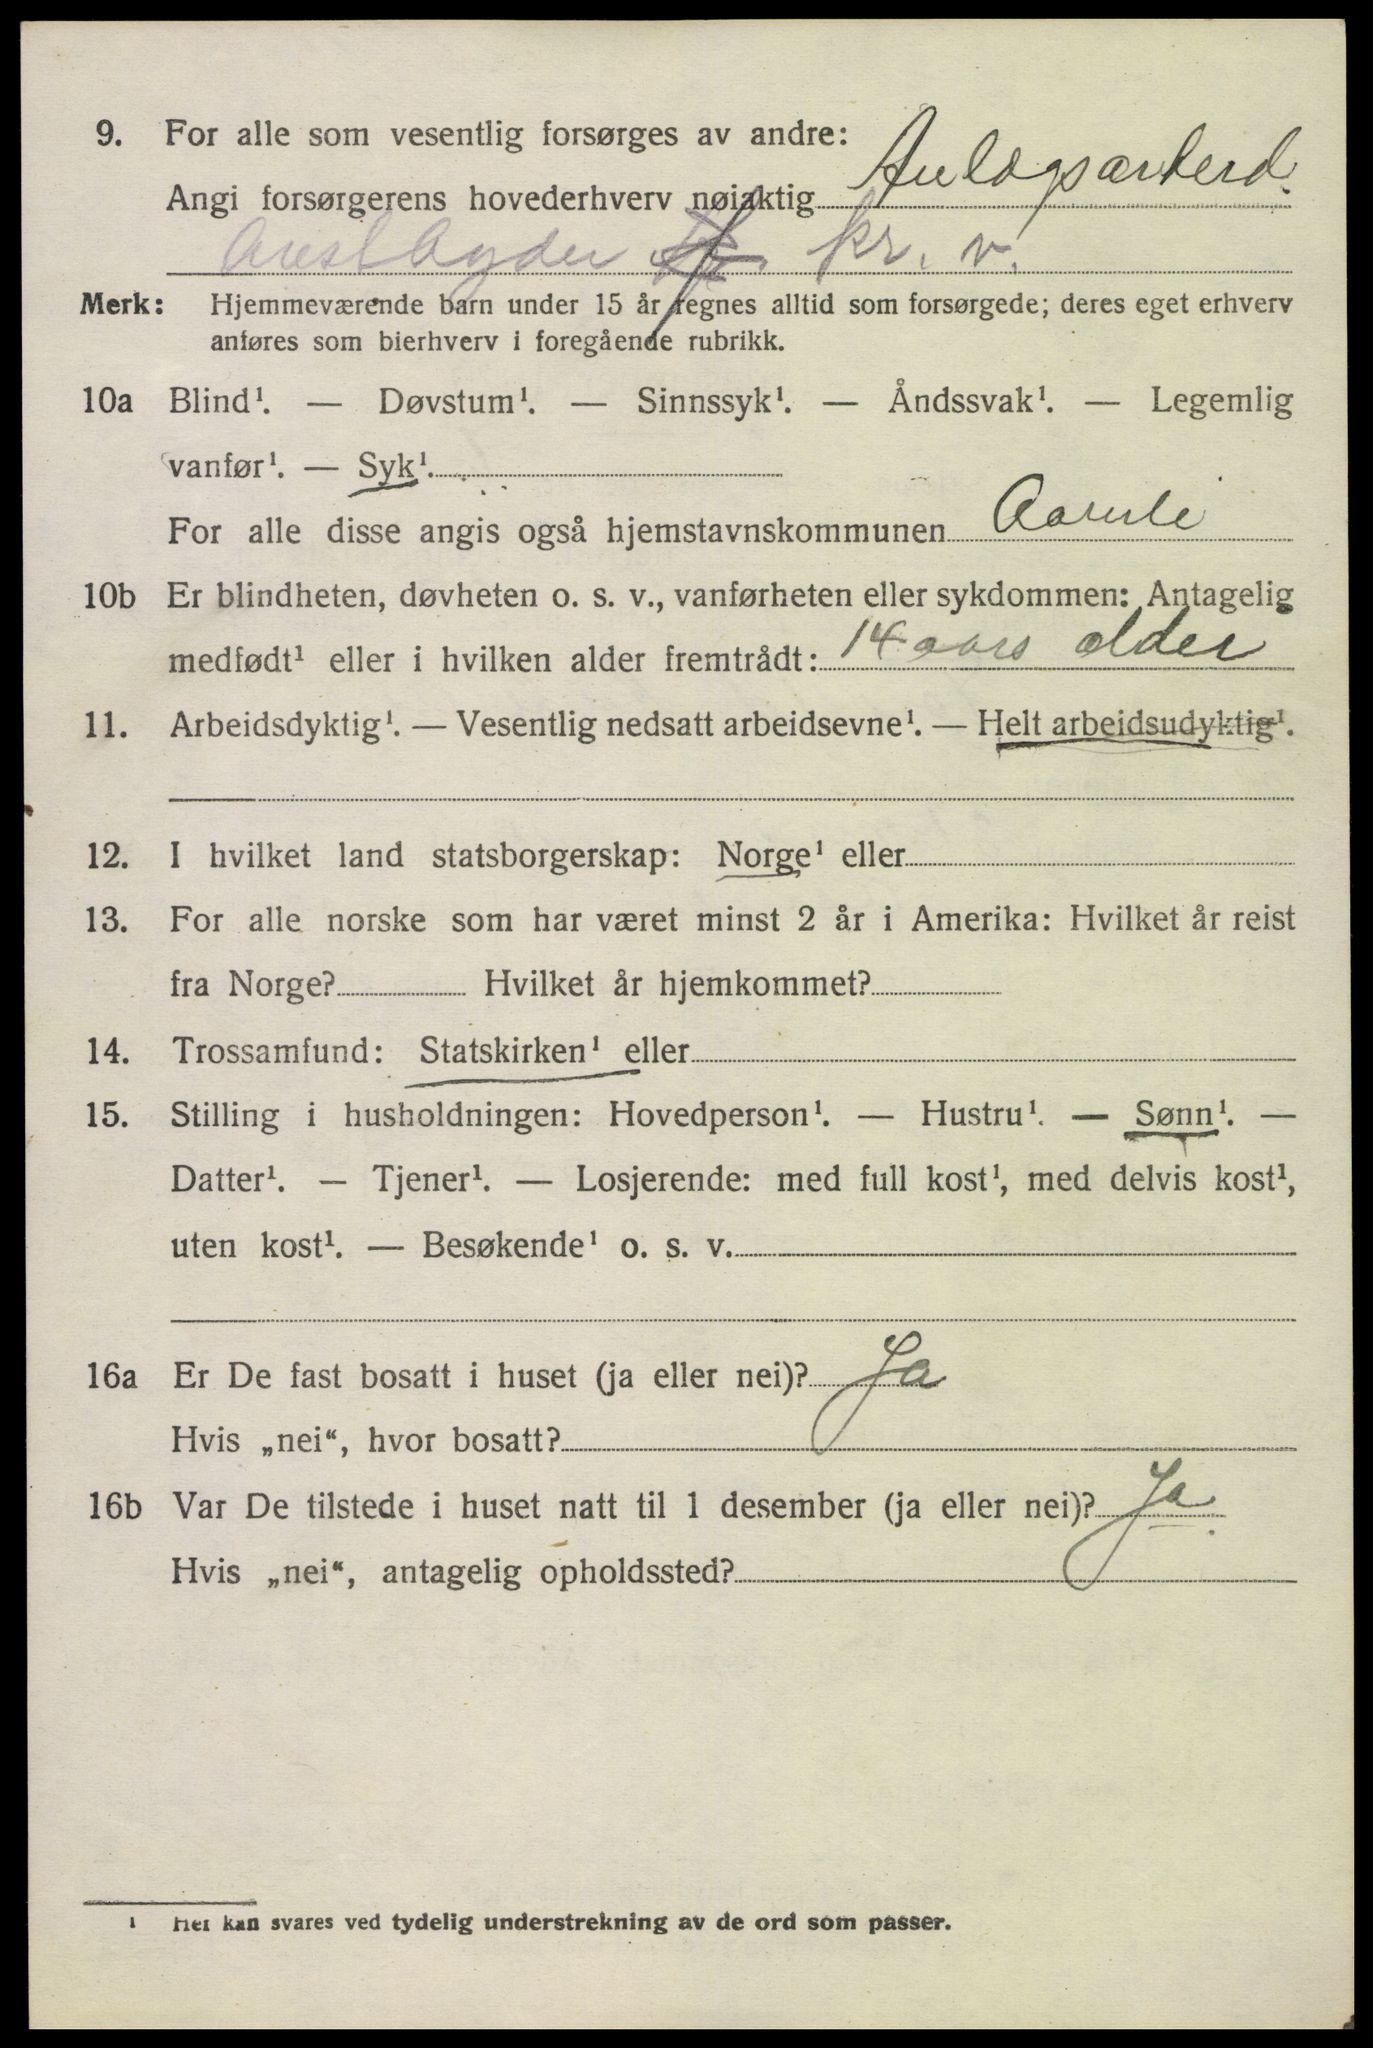 9. For alle som vesentlig forsørges av andre:
Angi forsørgerens hovederhverv nøiaktig Anlægsarbeid.
Aust Agder kr. v.
Merk: Hjemmeværende barn under 15 år regnes alltid som forsørgede; deres eget erhverv
anføres som bierhverv i foregående rubrikk.
10a Blind¹. — Døvstum¹. — Sinnssyk¹. — Åndssvak¹. — Legemlig
vanfør¹. — Syk¹.
For alle disse angis også hjemstavnskommunen Aamli
10b Er blindheten, døvheten o. s. v., vanførheten eller sykdommen: Antagelig
medfødt¹ eller i hvilken alder fremtrådt: 14 aars alder
11. Arbeidsdyktig¹. — Vesentlig nedsatt arbeidsevne¹. — Helt arbeidsudyktig¹.
12. I hvilket land statsborgerskap: Norge¹ eller
13. For alle norske som har været minst 2 år i Amerika: Hvilket år reist
fra Norge? Hvilket år hjemkommet?
14. Trossamfund: Statskirken¹ eller
15. Stilling i husholdningen: Hovedperson¹. — Hustru¹. — Sønn¹. —
Datter¹. — Tjener¹. — Losjerende: med full kost¹, med delvis kost¹,
uten kost¹. — Besøkende¹ o. s. v.
16a Er De fast bosatt i huset (ja eller nei)? Ja
Hvis „nei“, hvor bosatt?
16b Var De tilstede i huset natt til 1 desember (ja eller nei)? Ja
Hvis „nei“, antagelig opholdssted?
¹ Her kan svares ved tydelig understrekning av de ord som passer.